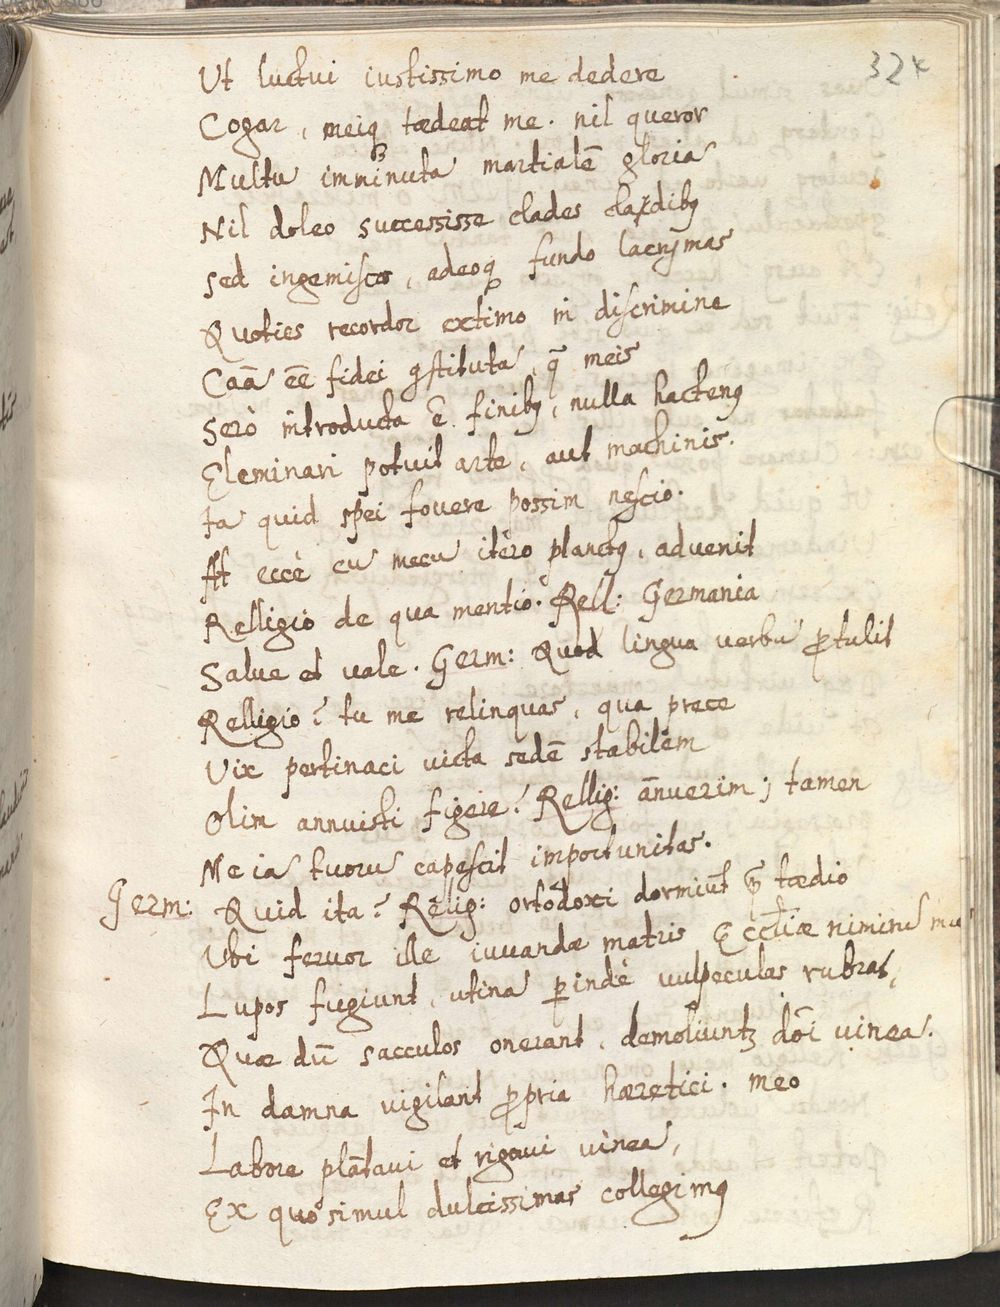 324
Ut luctui iustissimo me dedere
Cogar, meiq tædeat me. nil queror
Multũ imminuta martialẽ gloriã
Nil doleo successisse clades cladibꝫ
Sed ingemisco, adeoq fundo lacrymas
Quoties recordor extimo in discrimine
Caã eẽ fidei ꝯstitutã, q̃ meis
Serò introducta ẽ finibꝫ, nulla hactenꝰ
Eleminari potuit arte, aut machinis.
Ia quid spei fovere possim nescio.
At eccè cũ mecũ itẽro planctꝰ, advenit
Relligio de qua mentio. Rell: Germania
Salve et vale. Germ: Quod lingua verbũ ꝓtulit
Relligio? tu me relinquas, qua prece
Vix pertinaci victa sedẽ stabilem
Olim annuisti figere? Rellig: añuerim; tamen
Me iã tuorũ capescit importunitas.
Germ: Quid ita? Relig: ortodoxi dormiũt p̃ tædio
Ubi fervor ille iuvandæ matris Ecc̃liæ nimiũ
Lupos fugiunt, utinã ꝑindè vulpeculas rubras,
Quæ dũ sacculos onerant, demoliuntꝫ dñi vineã.
In damna vigilant ꝓpria hæretici. meo
Labore plãtavi et rigavi vineã,
Ex quo simul dulcissimas collegimꝰ